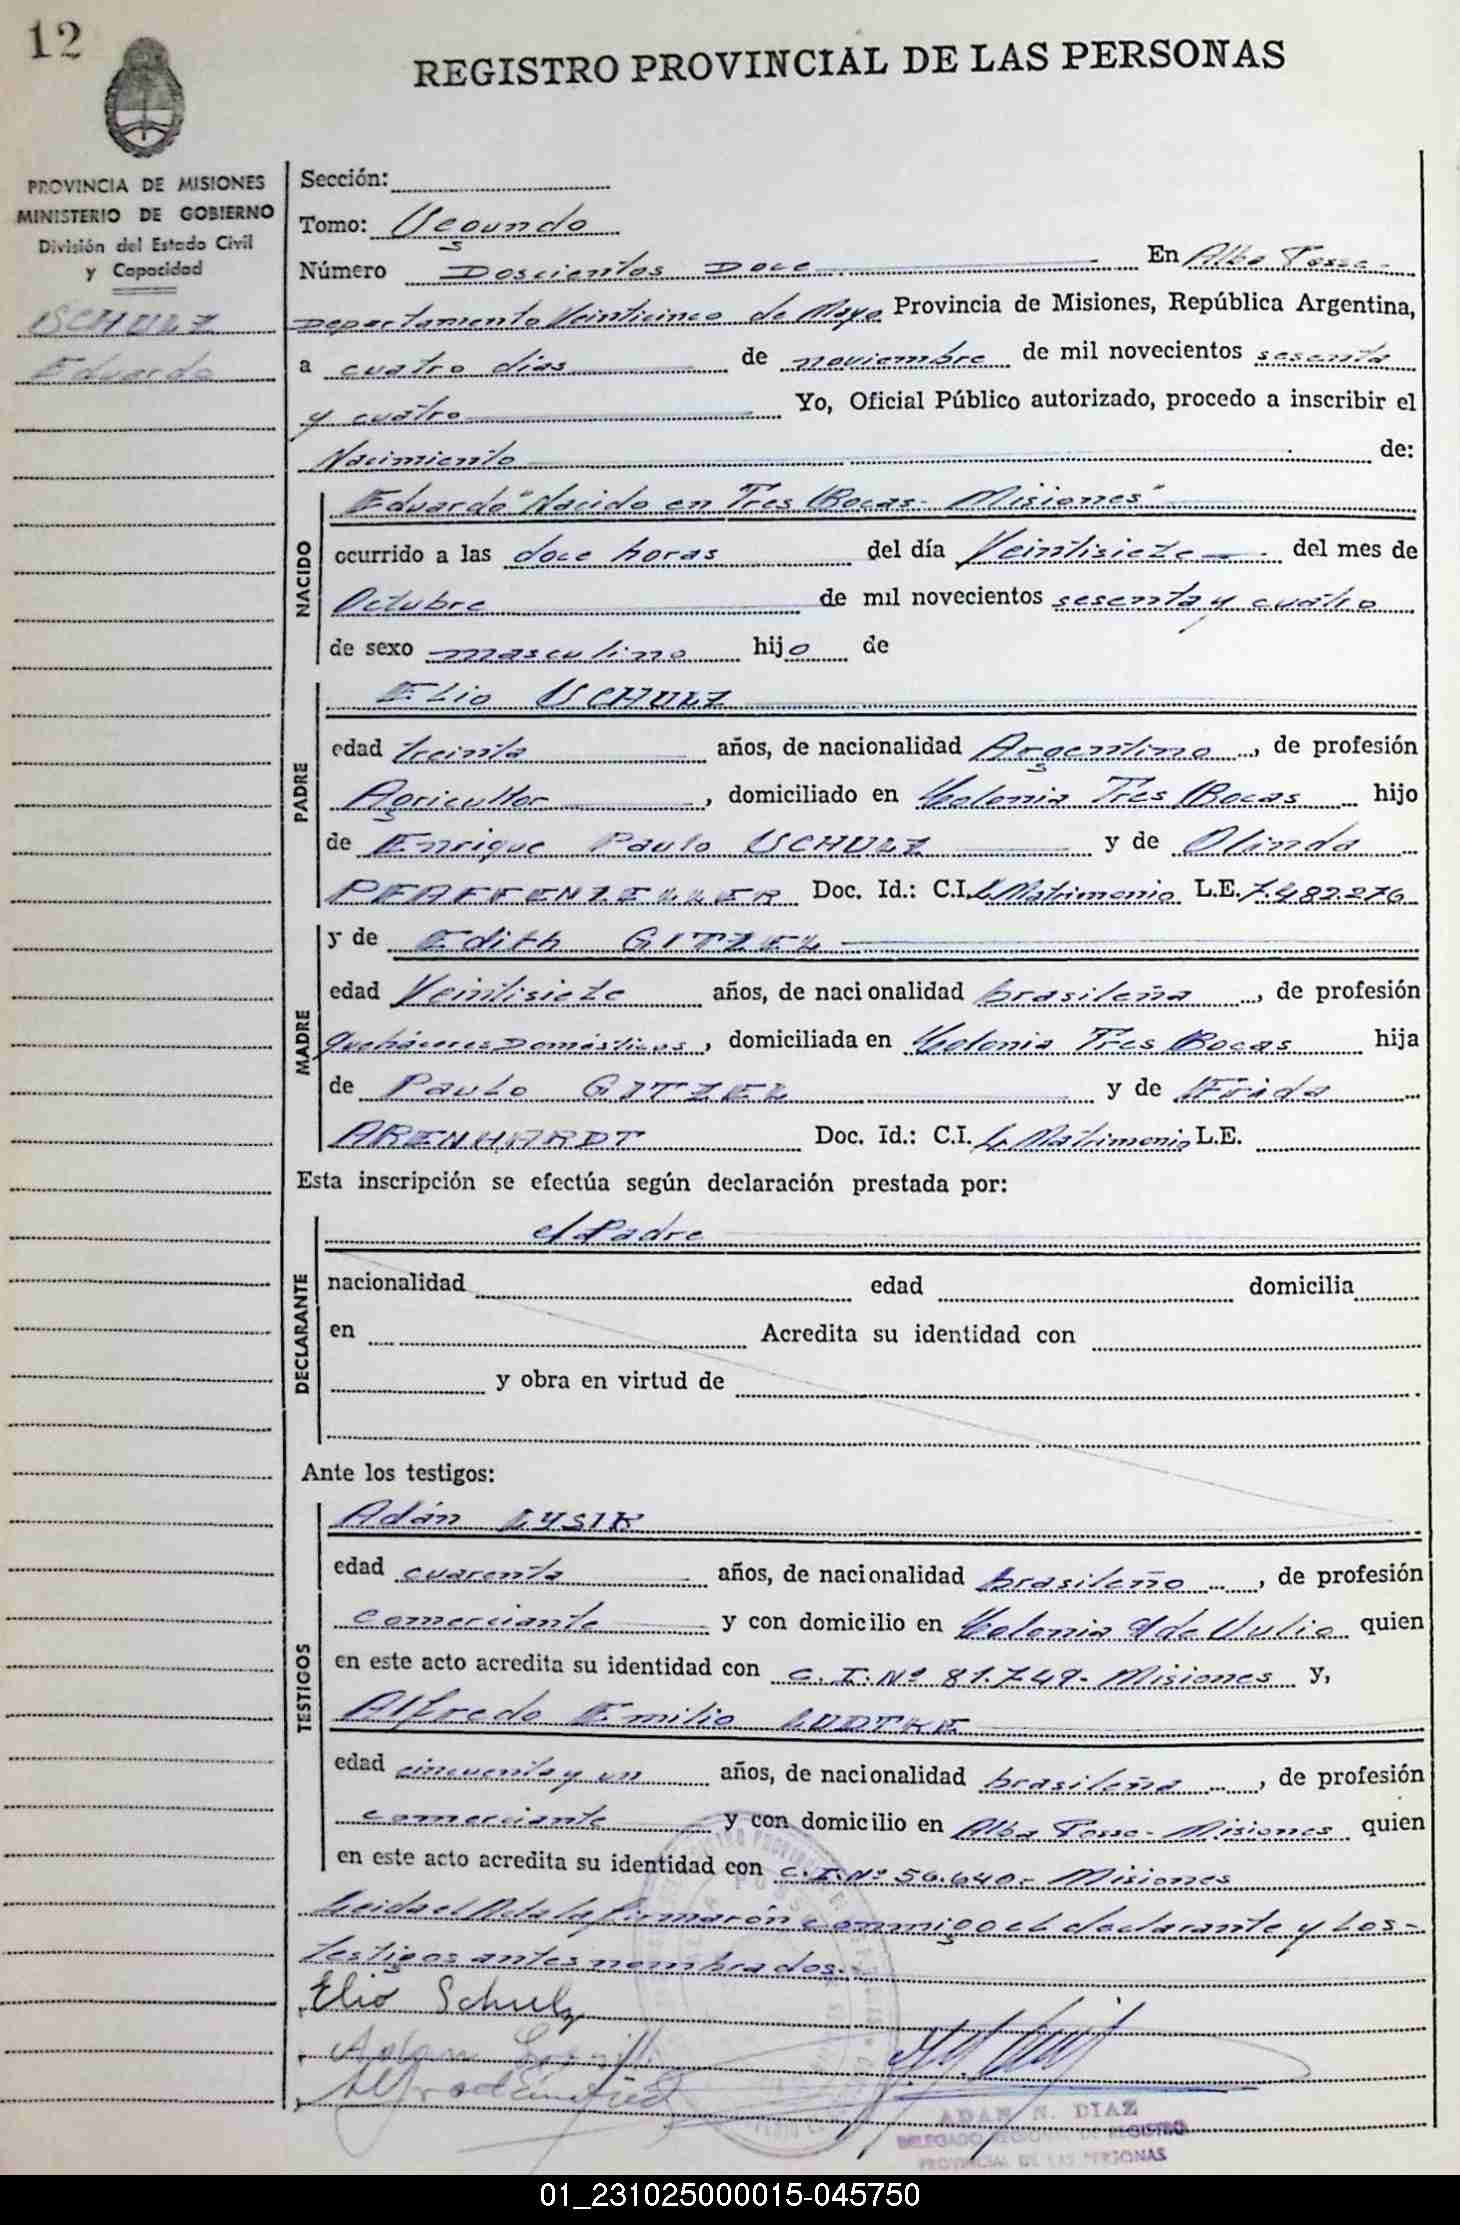 12
REGISTRO PROVINCIAL DE LAS PERSONAS
PROVINCIA DE MISIONES
MINISTERIO DE GOBIERNO
División del Estado Civil
y Capacidad
SCHULZ
Eduardo
Sección:
Tomo: Segundo
Número Doscientos Doce En Alba Posse-
Departamento Veinticinco de Mayo Provincia de Misiones, República Argentina,
a cuatro días de noviembre de mil novecientos sesenta
y cuatro Yo, Oficial Público autorizado, procedo a inscribir el
Nacimiento de:
NACIDO
Eduardo "Nacido en Tres Bocas- Misiones"
ocurrido a las doce horas del día Veintisiete del mes de
Octubre de mil novecientos sesenta y cuatro
de sexo masculino hijo de
PADRE
Elio SCHULZ
edad treinta años, de nacionalidad Argentino, de profesión
Agricultor, domiciliado en Colonia Tres Bocas hijo
de Enrique Paulo SCHULZ y de Olinda
PFAFFENZELLER Doc. Id.: C.I. L. Matrimonio L.E. 7.482.276
MADRE
y de Edith GITZEL
edad Veintisiete años, de nacionalidad brasileña, de profesión
Quehaceres Domésticos, domiciliada en Colonia Tres Bocas hija
de Paulo GITZEL y de Frida
ARENHARDT Doc. Id.: C.I. L. Matrimonio L.E.
Esta inscripción se efectúa según declaración prestada por:
DECLARANTE
el Padre
nacionalidad edad domicilia
en Acredita su identidad con
y obra en virtud de
Ante los testigos:
TESTIGOS
Adán LYSIK
edad cuarenta años, de nacionalidad brasileño, de profesión
comerciante y con domicilio en Colonia 9 de Julio quien
en este acto acredita su identidad con C.I. Nº 81.749- Misiones y,
Alfredo Emilio LUDTKE
edad cincuenta y un años, de nacionalidad brasileña, de profesión
comerciante y con domicilio en Alba Posse- Misiones quien
en este acto acredita su identidad con C.I. Nº 56.640.- Misiones
Leida el Acta la firmarón conmigo el declarante y los-
testigos antes nombrados.-
Elio Schulz
ADAN N. DIAZ
DELEGADO REGIONAL DE REGISTRO
PROVINCIAL DE LAS PERSONAS
01_231025000015-045750